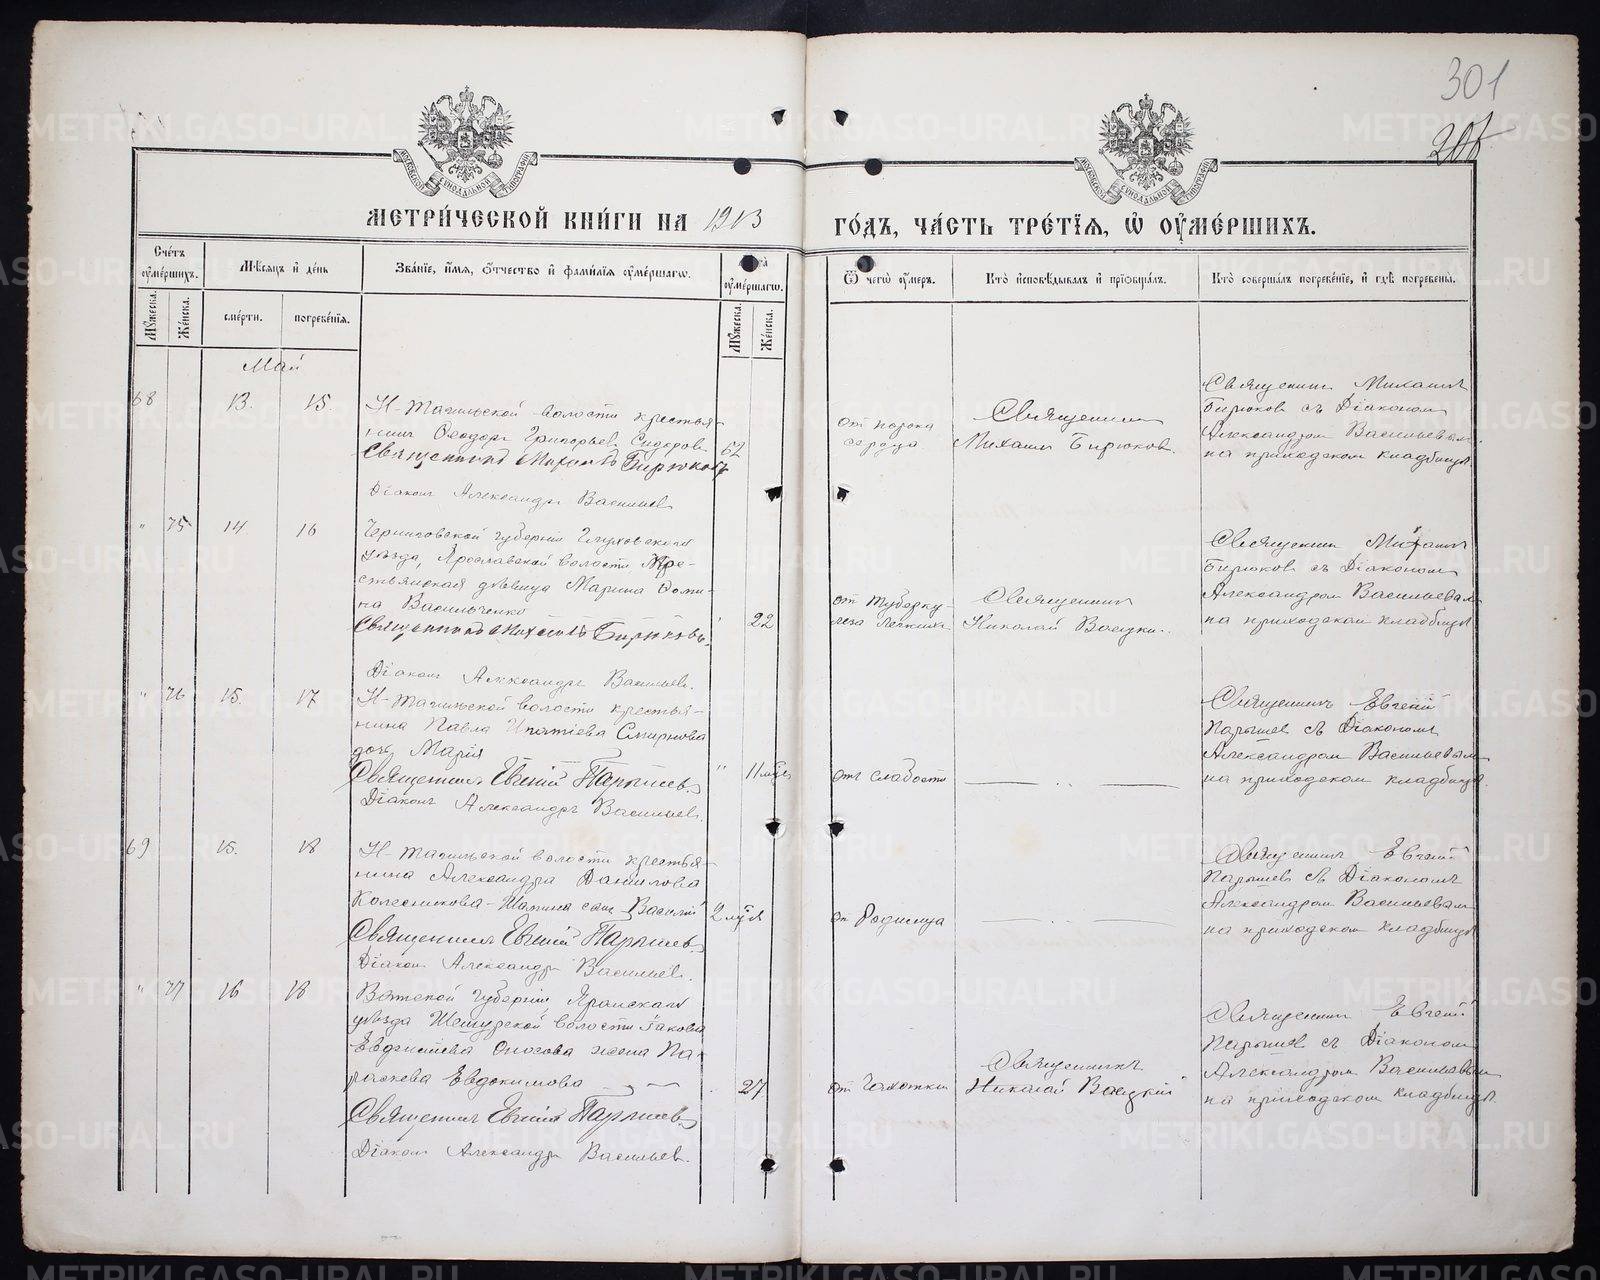 301
МЕТРИ́ЧЕСКОЙ КНИ́ГИ НА 1913 ГО́ДЪ, ЧА́СТЬ ТРЕ́ТІЯ, Ѿ ОУМЕ́РШИХЪ.
Сче́тъ оуме́ршихъ.
Мѣсяцъ и день
Зва́ніе, и́мя, о́тчество и фами́лія оуме́ршагѡ.
оуме́ршагѡ.
Ѿ чегѡ̀ оу́меръ.
Кто̀ исповѣ́дывалъ и прїобща́лъ.
Кто̀ соверша́лъ погребе́ніе, и гдѣ̀ погребены̀.
Мужеска.
Женска.
сме́рти.
погребе́нія.
Мужеска.
Женска.
Май
68 13. 15.
Н-Тагильской волости крестья-
нинъ Ѳеодоръ Григорьевъ Сидоровъ 62
Священникъ Михаилъ Бирюковъ
Діаконъ Александръ Васильевъ
отъ порока
сердца
Священникъ
Михаилъ Бирюковъ.
Священникъ Михаилъ
Бирюковъ съ Діакономъ
Александромъ Васильевымъ
на приходскомъ кладбищѣ.
" 75 14. 16
Черниговской губерніи Глуховскаго
уѣзда, Ярославской волости Кре-
стьянская дѣвица Марина Ѳоми-
на Васильченко 22
Священникъ Михаилъ Бирюковъ.
Діаконъ Александръ Васильевъ.
отъ туберку-
леза легкихъ
Священникъ
Николай
Священникъ Михаилъ
Бирюковъ съ Діакономъ
Александромъ Васильевымъ
на приходскомъ кладбищѣ
" 76 15. 17
Н-Тагильской волости крестья-
нина Павла Ипатіева Смирнова
дочь Марія " 11 мѣс
Священникъ Евгеній Парышевъ
Діаконъ Александръ Васильевъ.
отъ слабости
Священникъ Евгеній
Парышевъ съ Діакономъ
Александромъ Васильевымъ
на приходскомъ кладбищѣ.
69 15. 18
Н-Тагильской волости крестья-
нина Александра Данилова
Колесникова-Шамина сынъ Василій 2 мѣс
Священникъ Евгеній Парышевъ
Діаконъ Александръ Васильевъ.
отъ Родимца
Священникъ Евгеній
Парышевъ съ Діакономъ
Александромъ Васильевымъ
на приходскомъ кладбищѣ
" 77 16 18
Вятской губерніи, Яранскаго
уѣзда волости Іакова
жена Па-
раскева Евдокимова 27
Священникъ Евгеній Парышевъ
Діаконъ Александръ Васильевъ.
отъ Чахотки
Священникъ
Николай
Священникъ Евгеній
Парышевъ съ Діакономъ
Александромъ Васильевымъ
на приходскомъ кладбищѣ.
METRIKI.GASO-URAL.RU